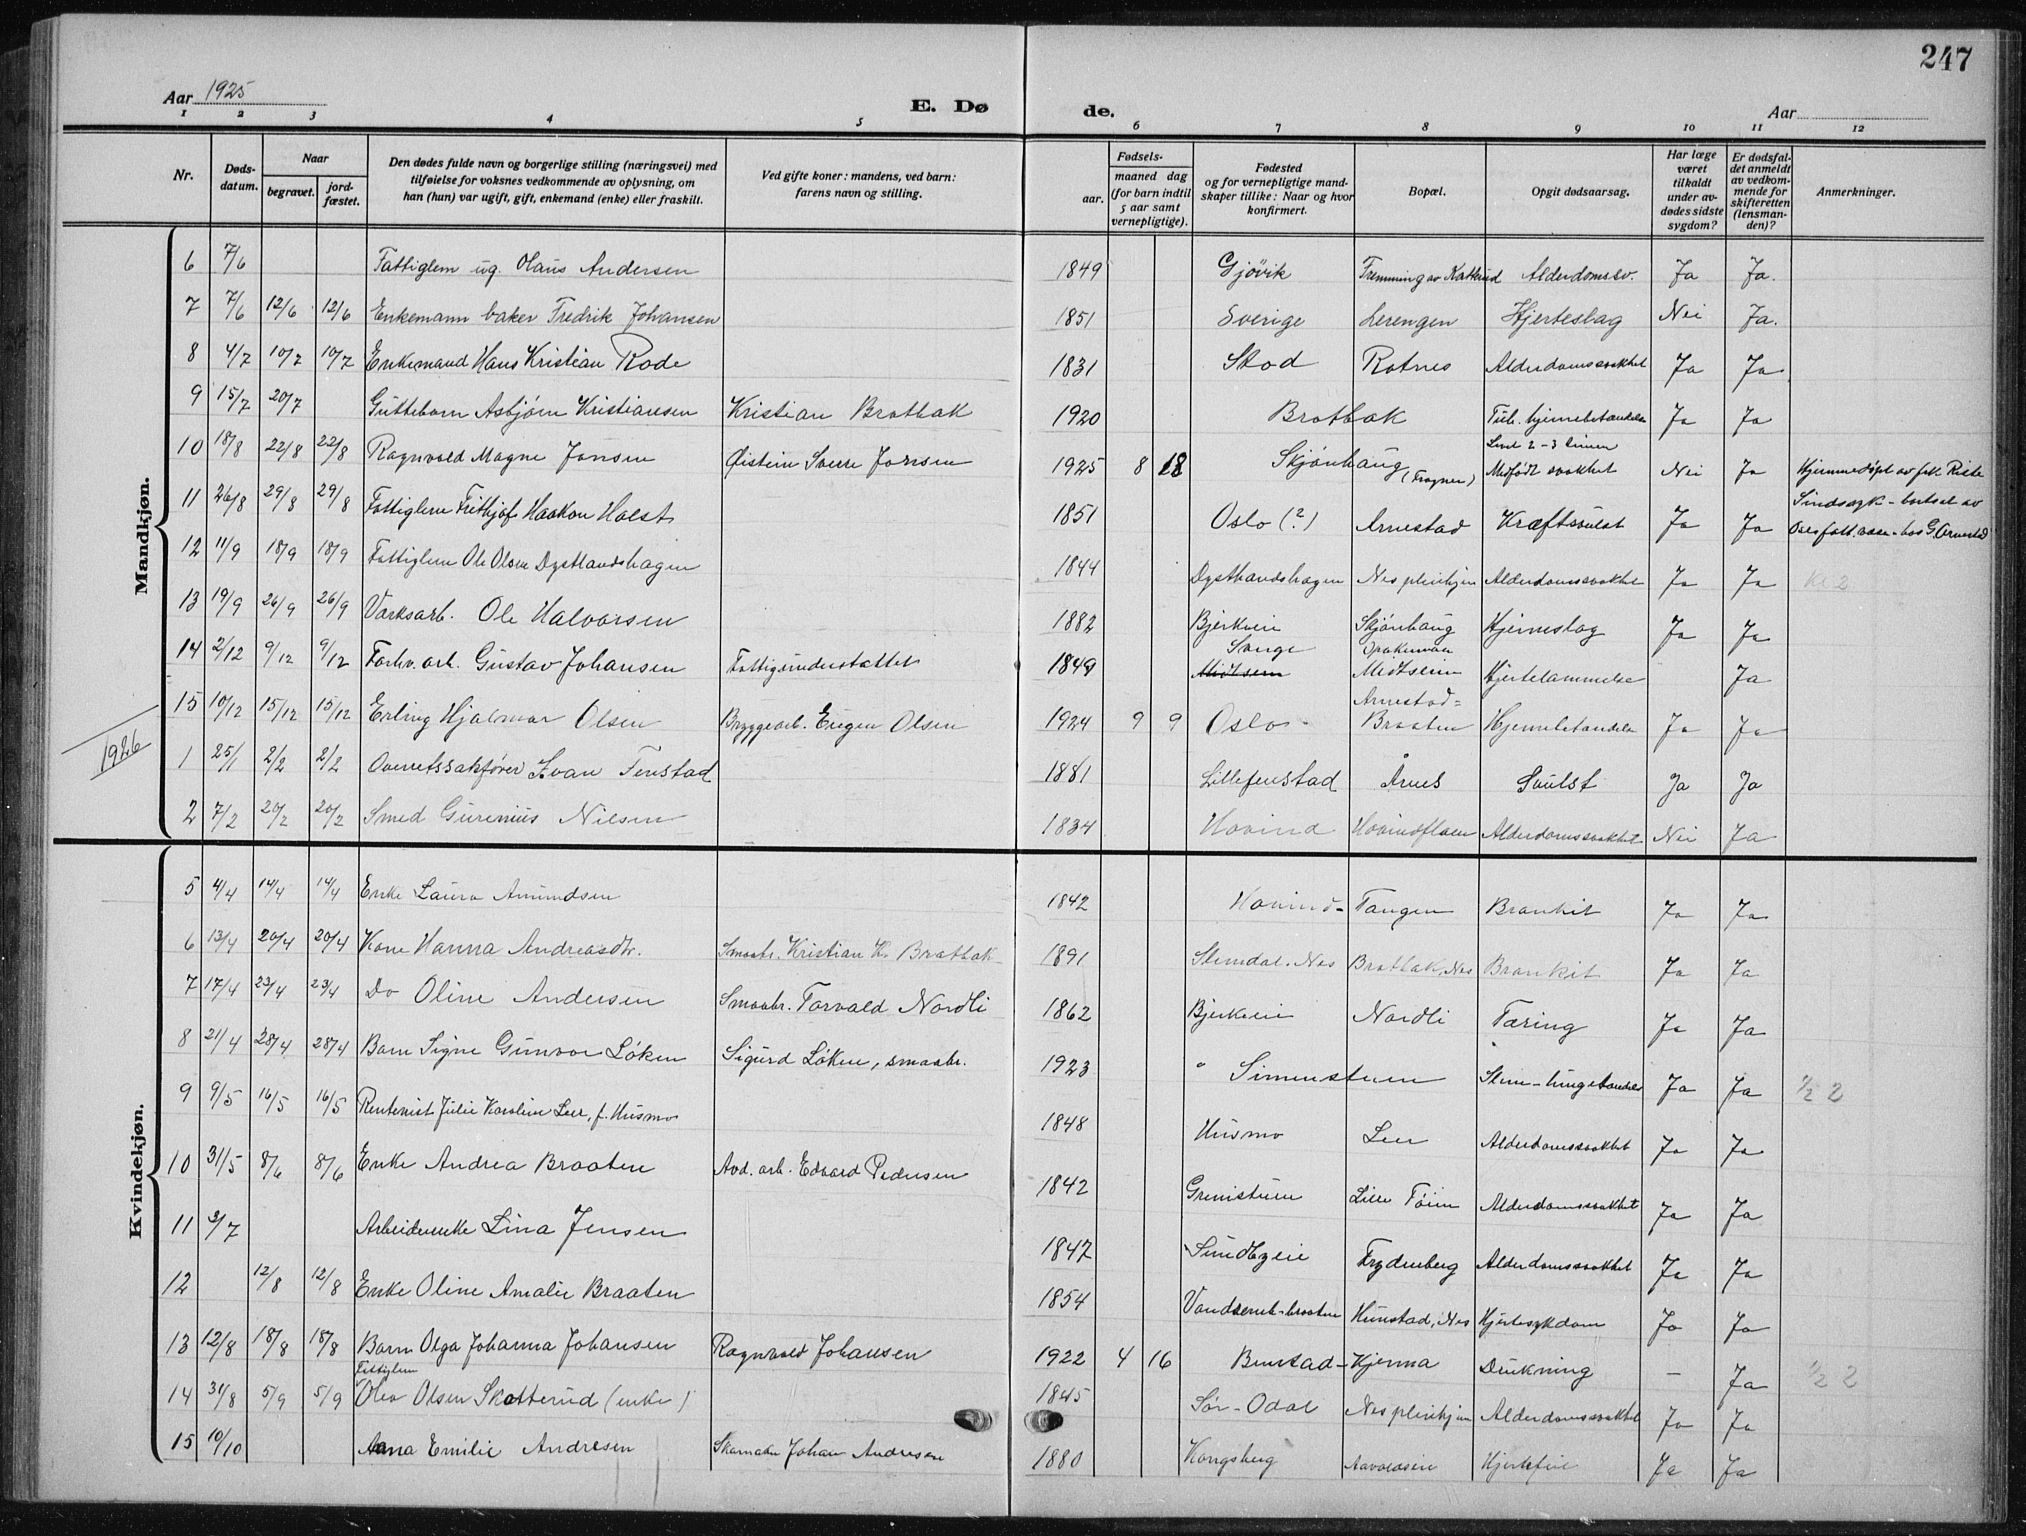 247
Aar 1925
E. Dø
de.
Aar
1 2 3 4 5 6 7 8 9 10 11 12
Nr.
Døds-
datum.
Naar
begravet.
jord-
fæstet.
Den dødes fulde navn og borgerlige stilling (næringsvei) med
tilføielse for voksnes vedkommende av oplysning, om
han (hun) var ugift, gift, enkemand (enke) eller fraskilt.
Ved gifte koner: mandens, ved barn:
farens navn og stilling.
Fødsels-
aar.
maaned dag
(for barn indtil
5 aar samt
vernepligtige).
Fødested
og for vernepligtige mand-
skaper tillike: Naar og hvor
konfirmert.
Bopæl.
Opgit dødsaarsag.
Har læge
været
tilkaldt
under av-
dødes sidste
sygdom?
Er dødsfal-
det anmeldt
av vedkom-
mende for
skifteretten
(lensman-
den)?
Anmerkninger.
Mandkjøn.
6 7/6 Fattiglem ug. Olaus Andersen 1849 Gjøvik Fremming av Kattrud Alderdomssv. Ja Ja.
7 7/6 12/6 12/6 Enkemann baker Fredrik Johansen 1851 Sverige Lerengen Hjerteslag Nei Ja.
8 4/7 10/7 10/7 Enkemand Hans Kristian Rode 1831 Skod Rotnes Alderdomssvakhet Ja Ja
9 15/7 20/7 Guttebarn Asbjørn Kristiansen Kristian Brotbak 1920 Brotbak Tub. hjernebetændelse Ja Ja
10 18/8 22/8 22/8 Ragnvald Magne Jansen Øistein Sverre Jansen 1925 8 18 Skjønhaug (Frogner) Levd 2-3 timer
Medfødt svakhet Nei Ja Hjemmedøpt av frk. Riste
11 26/8 29/8 29/8 Fattiglem Frithjof Haakon Holst 1851 Oslo (?) Arnestad Kræftsvulst Ja Ja Sindssyk - bortsat av
Oslo fatt.væsen - hos G. Arnestad
12 11/9 18/9 18/9 Fattiglem Ole Olsen Dysthandshagen 1844 Dysthandshagen Nes pleiehjem Alderdomssvakhet Ja Ja
13 19/9 26/9 26/9 Værksarb. Ole Halvorsen 1882 Bjerkeeie Skjønhaug Hjerneslag Ja Ja
14 2/12 9/12 9/12 Forhv. arb. Gustav Johansen Fattigunderstøttet 1849 Midtseim Midtseim Hjertelammelse Ja
15 10/12 15/12 15/12 Erling Hjalmar Olsen Bryggearb. Eugen Olsen 1924 9 9 Oslo Arnestad-
Braaten Hjernebetændelse Ja Ja
1926
1 25/1 2/2 2/2 Overretssakfører Ivan Fenstad 1881 Lillefenstad Årnes Svulst Ja Ja
2 7/2 20/2 20/2 Smed Gurenius Nilsen 1834 Hovind Hovindfloen Alderdomssvakhet Nei Ja
Kvindekjøn.
5 4/4 14/4 14/4 Enke Laura Amundsen 1842 Hovind - Tangen Bronkit Ja Ja
6 13/4 20/4 20/4 Kone Hanna Andreasdtr. Smaabr. Kristian K. Bratbak 1891 Stemdal. Nes Bratbak, Nes Bronkit Ja Ja
7 17/4 23/4 23/4 Do Oline Andersen Smaabr. Torvald Nordli 1862 Bjerkeeie Nordli Tæring Ja Ja
8 21/4 28/4 28/4 Barn Signe Gunvor Løken Sigurd Løken, smaabr. 1923 Simenstuen Ja Ja
9 9/5 16/5 16/5 Rentenist Julie Karoline Leer, f. Husmo 1848 Husmo Leer Alderdomssvakhet Ja Ja
10 31/5 8/6 8/6 Enke Andrea Braaten Avd. arb. Edvard Pedersen 1842 Grinistuen Lille Tøien Alderdomssvakhet Ja Ja
11 3/7 Arbeiderenke Lina Jensen 1847 Sundbyeie Frydenberg Alderdomssvakhet Ja Ja
12 12/8 12/8 Enke Oline Amalie Braaten 1854 Hunstad, Nes Hjertesykdom Ja Ja
13 12/8 18/8 18/8 Barn Olga Johanna Johansen Ragnvald Johansen 1922 4 16 Benstad-Kjerma Drukning - Ja
14 31/8 5/9 5/9 Fattiglem
Olea Olsen Skotterud (enke) 1845 Sør-Odal Nes pleiehjem Alderdomssvakhet Ja Ja
15 10/10 Anna Emilie Andresen Skomaker Johan Andresen 1880 Kongsberg Aavoldseie Hjertefeil Ja Ja